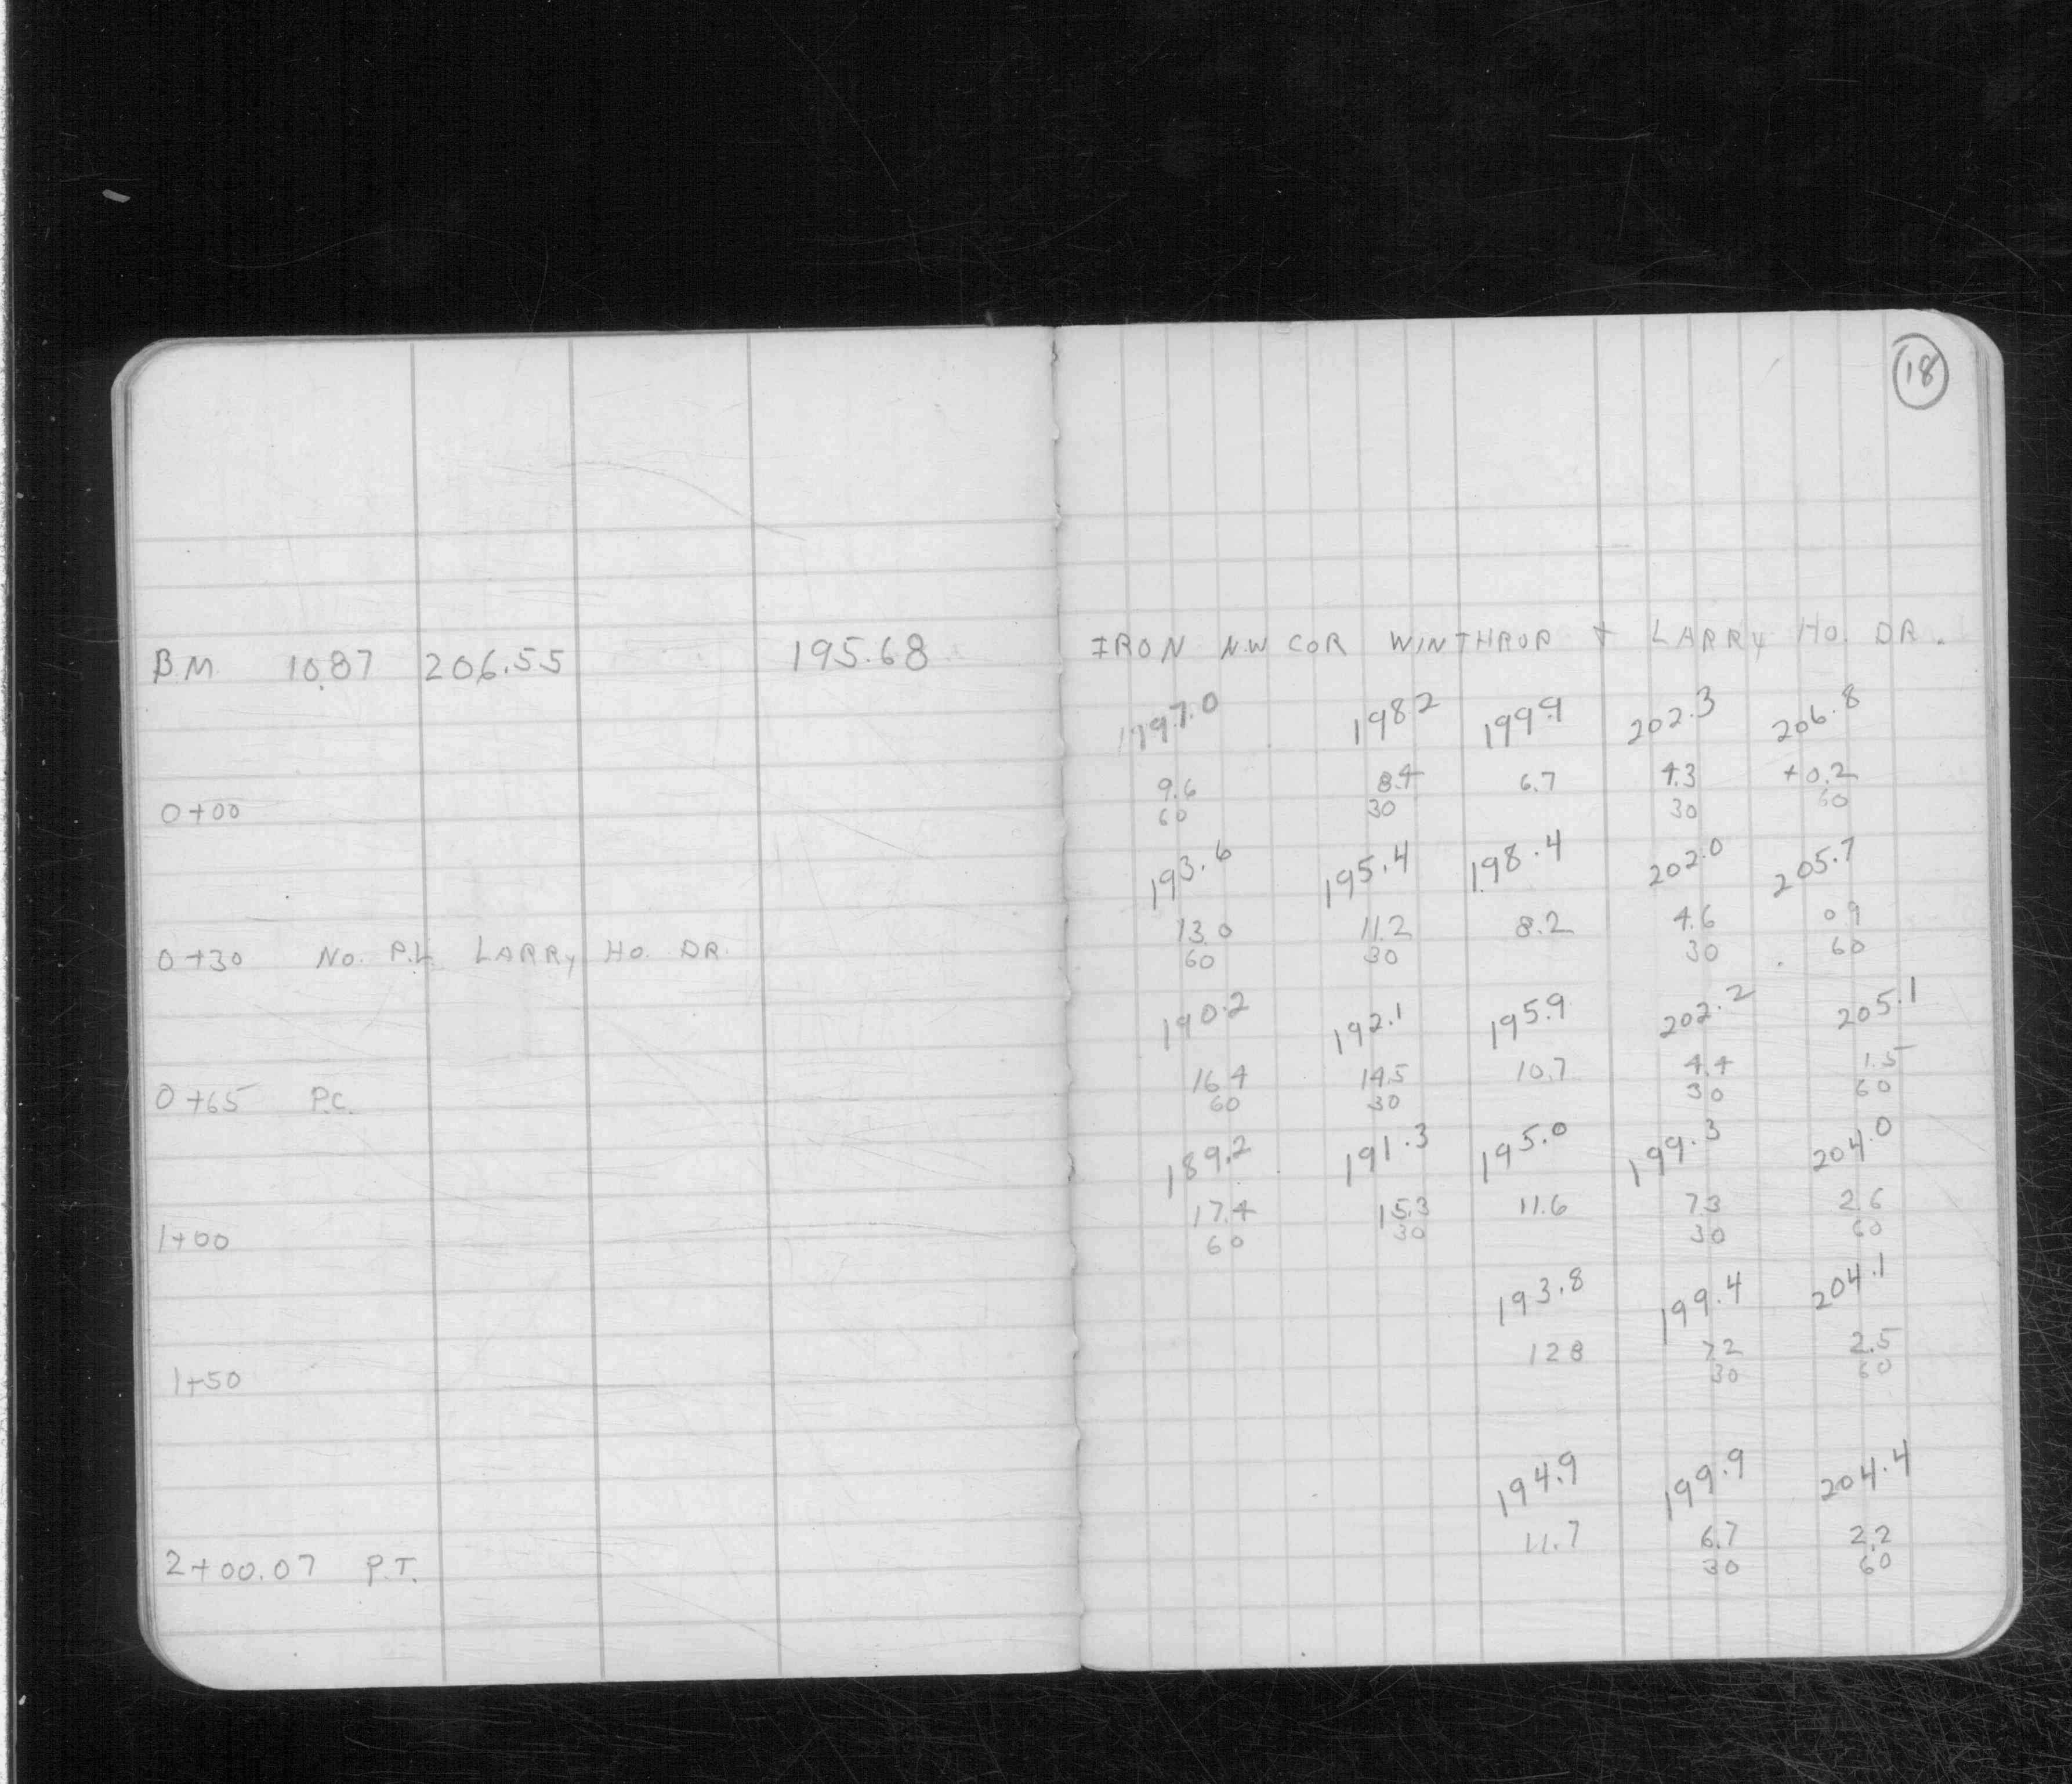 18
B.M. 10.87 206.55 195.68 IRON N.W COR WINTHROP + LARRY HO. DR.
197.0 198.2 199.9 202.3 206.8
9.6 8.4 6.7 4.3 +0.2
0+00 60 30 30 60
193.6 195.4 198.4 202.0 205.7
13.0 11.2 8.2 4.6 0.9
0+30 No. P.L. LARRY HO. DR. 60 30 30 60
190.2 192.1 195.9 202.2 205.1
16.4 14.5 10.7 4.4 1.5
0+65 P.C. 60 30 30 60
189.2 191.3 195.0 199.3 204.0
17.4 15.3 11.6 7.3 2.6
1+00 60 30 30 60
193.8 199.4 204.1
12.8 7.2 2.5
1+50 30 60
194.9 199.9 204.4
11.7 6.7 2.2
2+00.07 P.T. 30 60